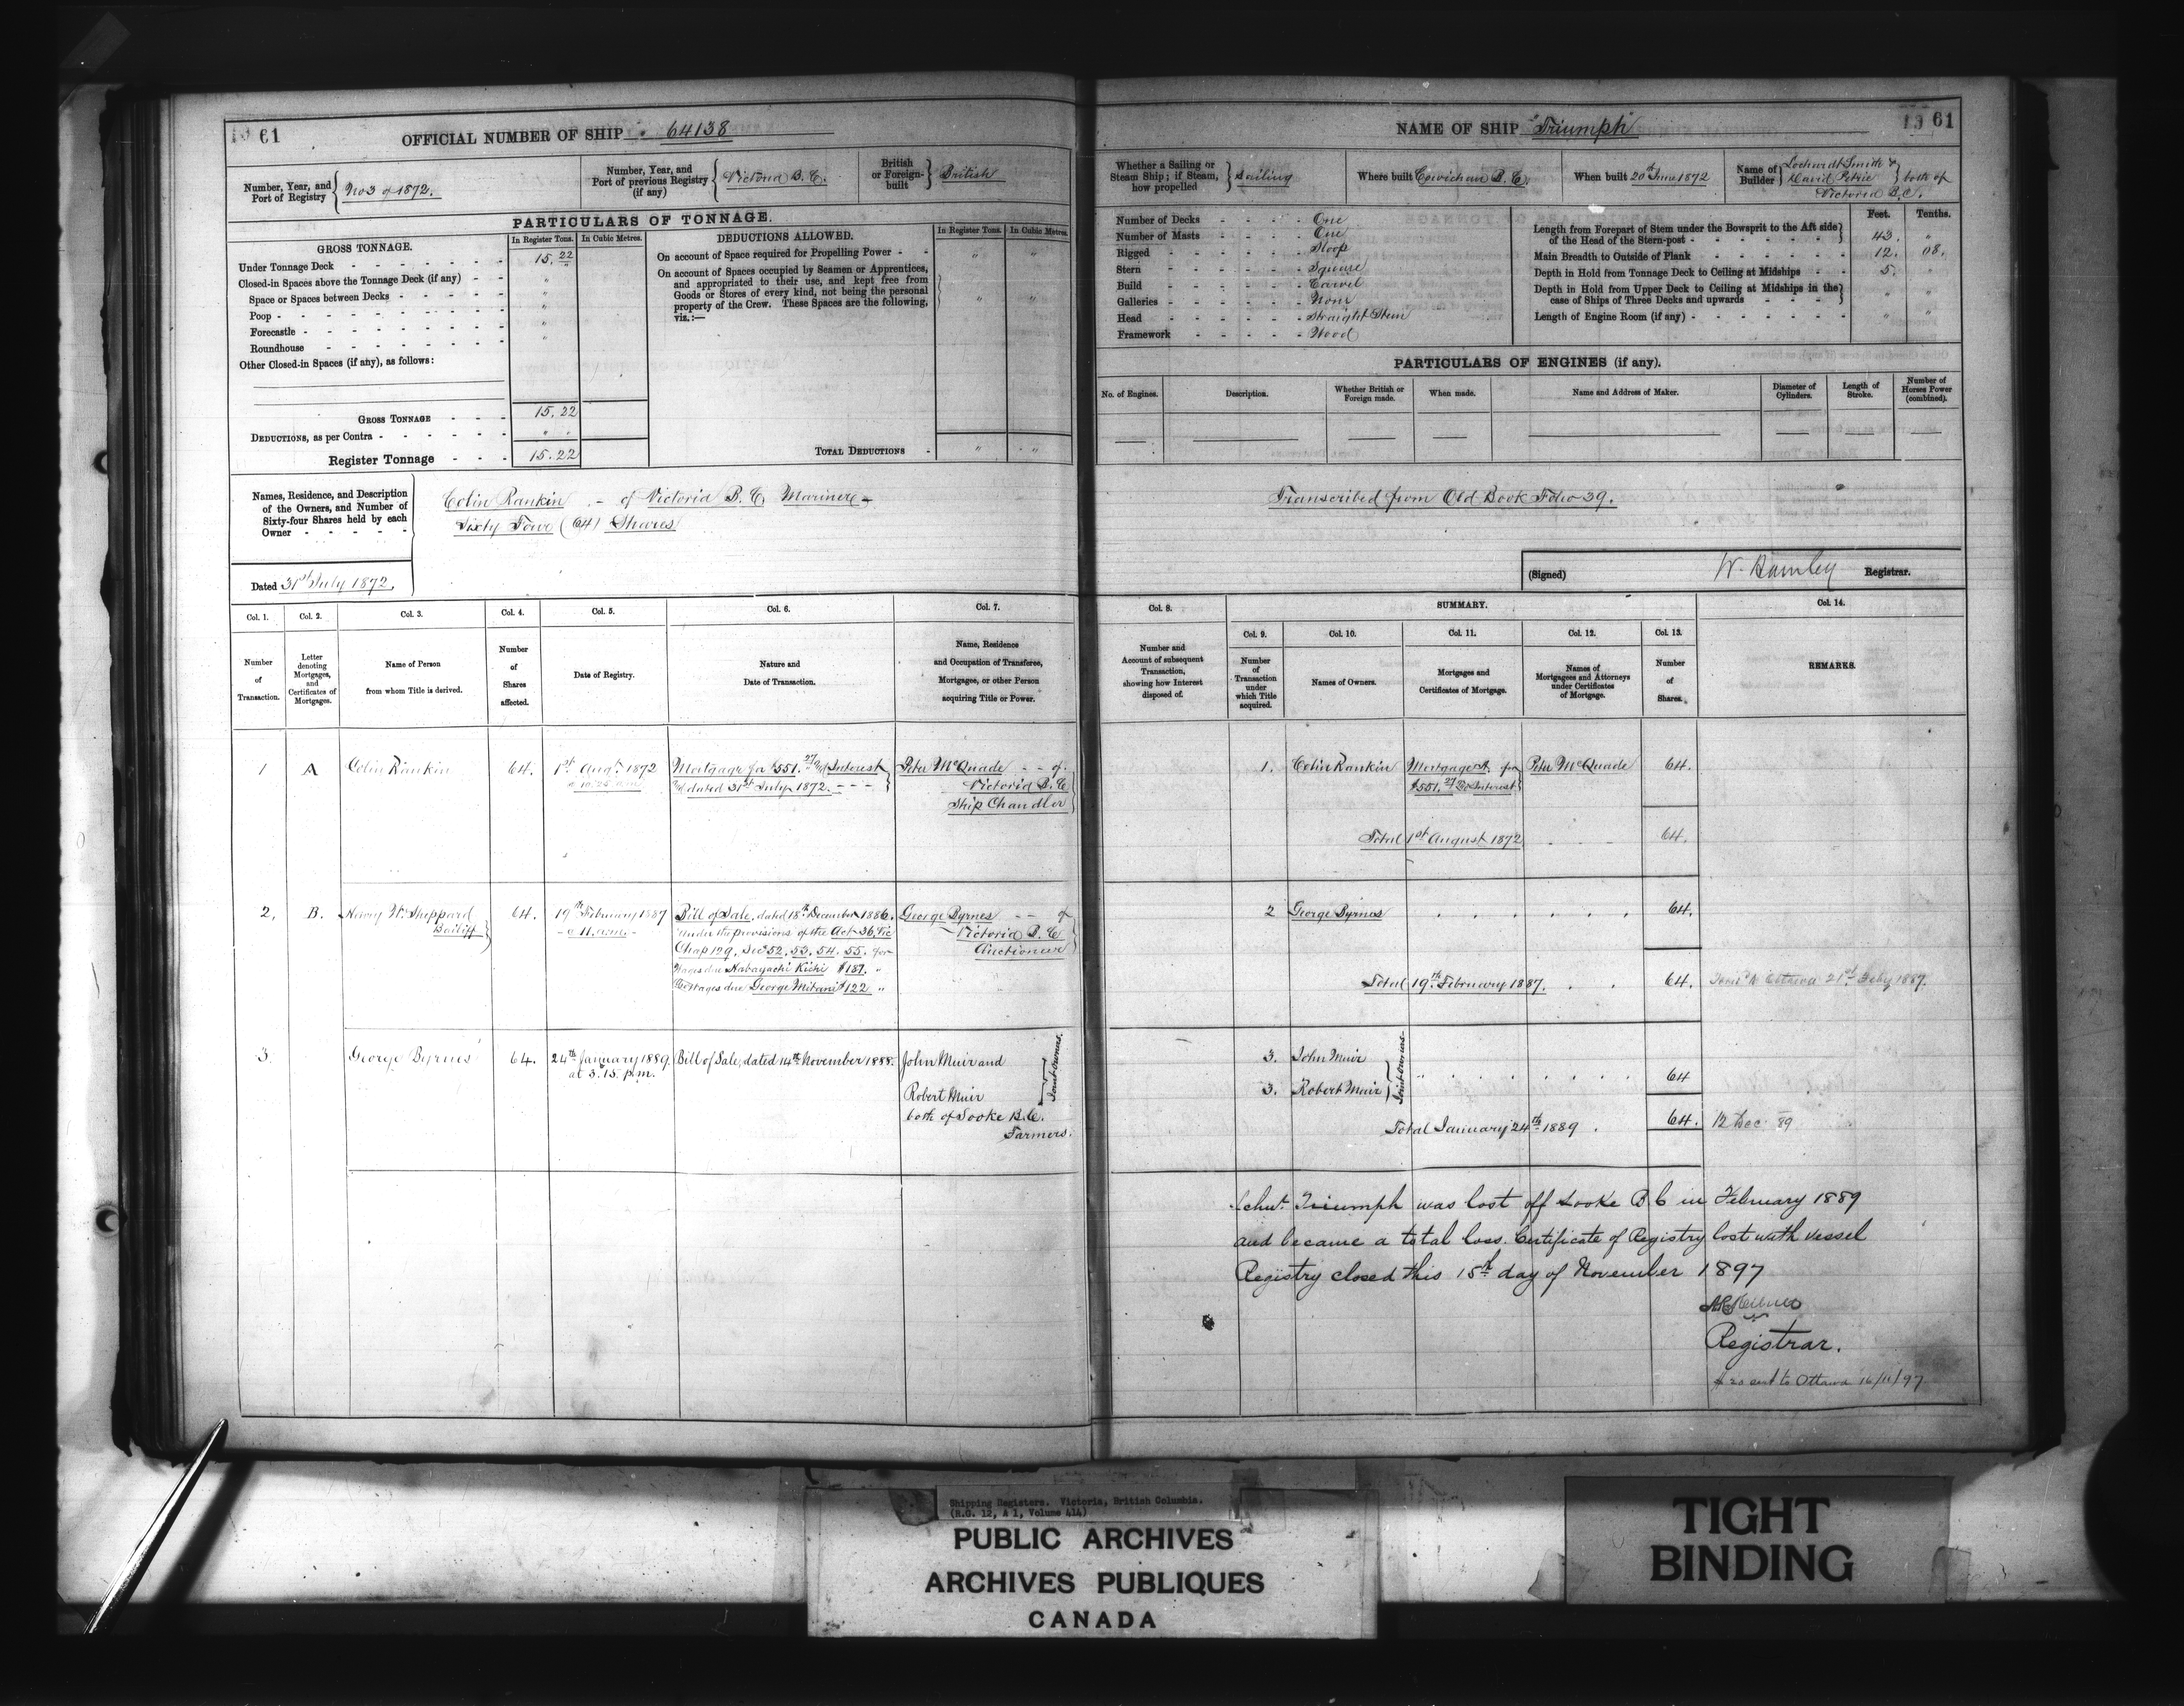 1961
OFFICIAL NUMBER OF SHIP 64138
Number, Year, and
Port of Registry
No 3 of 1872.
Number, Year, and
Port of previous Registry
(if any)
Victoria B.C.
British
or Foreign-
built
British
PARTICULARS OF TONNAGE.
GROSS TONNAGE.
In Register Tons.
In Cubic Metres.
DEDUCTIONS ALLOWED.
In Register Tons.
In Cubic Metres.
Under Tonnage Deck - 15.22
Closed-in Spaces above the Tonnage Deck (if any) - "
Space or Spaces between Decks - "
Poop - "
Forecastle - "
Roundhouse - "
Other Closed-in Spaces (if any), as follows:
On account of Space required for Propelling Power - " "
On account of Spaces occupied by Seamen or Apprentices,
and appropriated to their use, and kept free from
Goods or Stores of every kind, not being the personal
property of the Crew. These Spaces are the following,
viz.:— " "
GROSS TONNAGE - 15.22
DEDUCTIONS, as per Contra - " "
Register Tonnage - 15.22
TOTAL DEDUCTIONS - " "
Names, Residence, and Description
of the Owners, and Number of
Sixty-four Shares held by each
Owner
Colin Rankin - of Victoria B.C. Mariner
Sixty Four (64) Shares
Dated 31st July 1872.
Col. 1.
Number
of
Transaction.
Col. 2.
Letter
denoting
Mortgages,
and
Certificates of
Mortgages.
Col. 3.
Name of Person
from whom Title is derived.
Col. 4.
Number
of
Shares
affected.
Col. 5.
Date of Registry.
Col. 6.
Nature and
Date of Transaction.
Col. 7.
Name, Residence
and Occupation of Transferee,
Mortgagee, or other Person
acquiring Title or Power.
1 A Colin Rankin 64. 1st Augt 1872
Mortgage for $551.27 Interest
dated 31st July 1872.
Peter McQuade - - of
Victoria B.C.
Ship Chandler
2, B. Henry W. Sheppard
Bailiff
64. 19th February 1887
a 11. a.m.
Bill of Sale, dated 18th December 1886.
under the provisions of the Act 36 Vic
Chap 129, Secs 52, 53, 54, 55. for
Wages due Kichi $187.
Wages due George Mitani $122 "
George Byrnes - - of
Victoria B.C.
Auctioneer
3. George Byrnes 64. 24th January 1889.
at 3.15. p.m.
Bill of Sale, dated 14th November 1888.
John Muir and
Robert Muir
both of Sooke B.C.
Farmers.
Joint Owners.
NAME OF SHIP "Triumph"
1961
Whether a Sailing or
Steam Ship; if Steam,
how propelled
Sailing
Where built Cowichan B.C.
When built 20th June 1872
Name of
Builder
Smith &
David Petrie
both of
Victoria B.C.
Number of Decks - One
Number of Masts - One
Rigged - Sloop
Stern - Square
Build - Carvel
Galleries - None
Head - Straight Stem
Framework - Wood
Feet. Tenths.
Length from Forepart of Stem under the Bowsprit to the Aft side
of the Head of the Stern-post - 43. "
Main Breadth to Outside of Plank - 12. 08.
Depth in Hold from Tonnage Deck to Ceiling at Midships - 5. "
Depth in Hold from Upper Deck to Ceiling at Midships in the
case of Ships of Three Decks and upwards - " "
Length of Engine Room (if any) - " "
PARTICULARS OF ENGINES (if any).
No. of Engines.
Description.
Whether British or
Foreign made.
When made.
Name and Address of Maker.
Diameter of
Cylinders.
Length of
Stroke.
Number of
Horses Power
(combined).
Transcribed from Old Book Folio 39.
(Signed) W. Hamley Registrar.
Col. 8.
Number and
Account of subsequent
Transaction,
showing how Interest
disposed of.
SUMMARY.
Col. 9.
Number
of
Transaction
under
which Title
acquired.
Col. 10.
Names of Owners.
Col. 11.
Mortgages and
Certificates of Mortgage.
Col. 12.
Names of
Mortgagees and Attorneys
under Certificates
of Mortgage.
Col. 13.
Number
of
Shares.
Col. 14.
REMARKS.
1. Colin Rankin Mortgage A. for Peter McQuade 64.
$551.27 Interest
Total 1st August 1872 64.
2 George Byrnes 64.
Total 19th February 1887. 64. 21st Feby 1887.
3. John Muir
3. Robert Muir
Joint Owners.
64
Total January 24th 1889. 64. 12 Dec 89
Schr. Triumph was lost off Sooke B C in February 1889
and became a total loss. Certificate of Registry lost with vessel
Registry closed this 15th day of November 1897
Registrar.
20 sent to Ottawa 16/11/97
Shipping Registers. Victoria, British Columbia.
(R.G. 12, A 1, Volume 414)
PUBLIC ARCHIVES
ARCHIVES PUBLIQUES
CANADA
TIGHT
BINDING